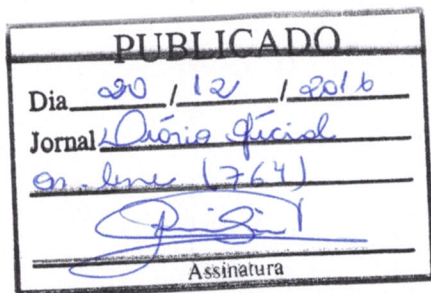 PUBLICADO
Dia 20 / 12 / 2016
Jornal Diário Oficial
on-line (764)
Assinatura